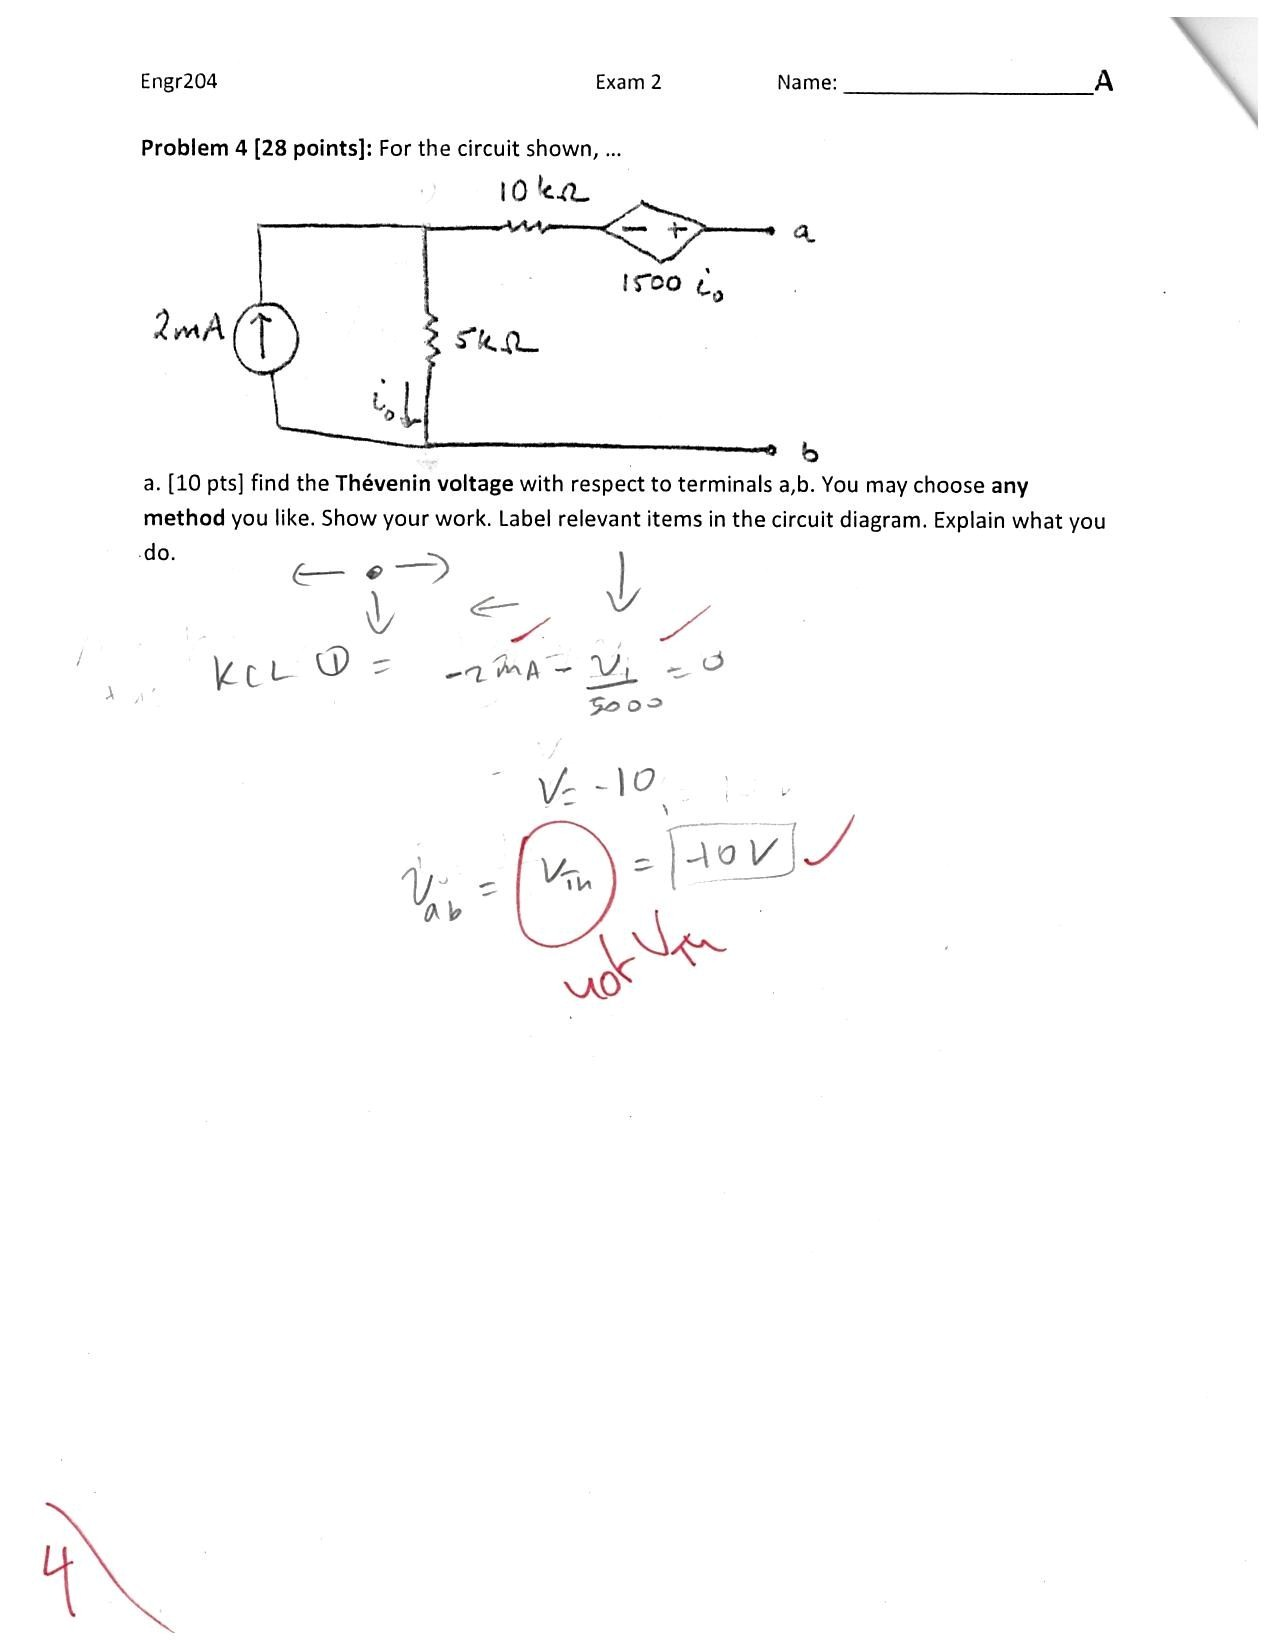 Engr204 Exam 2 Name: ____________________A
Problem 4 [28 points]: For the circuit shown, ...
10 kΩ
− + a
1500 i₀
2mA ↑ 5kΩ
i₀ ↓
b
a. [10 pts] find the Thévenin voltage with respect to terminals a,b. You may choose any
method you like. Show your work. Label relevant items in the circuit diagram. Explain what you
do.
KCL ① = -2mA - V₁/5000 = 0
V= -10
Vab = VTh = -10V
not VTH
4